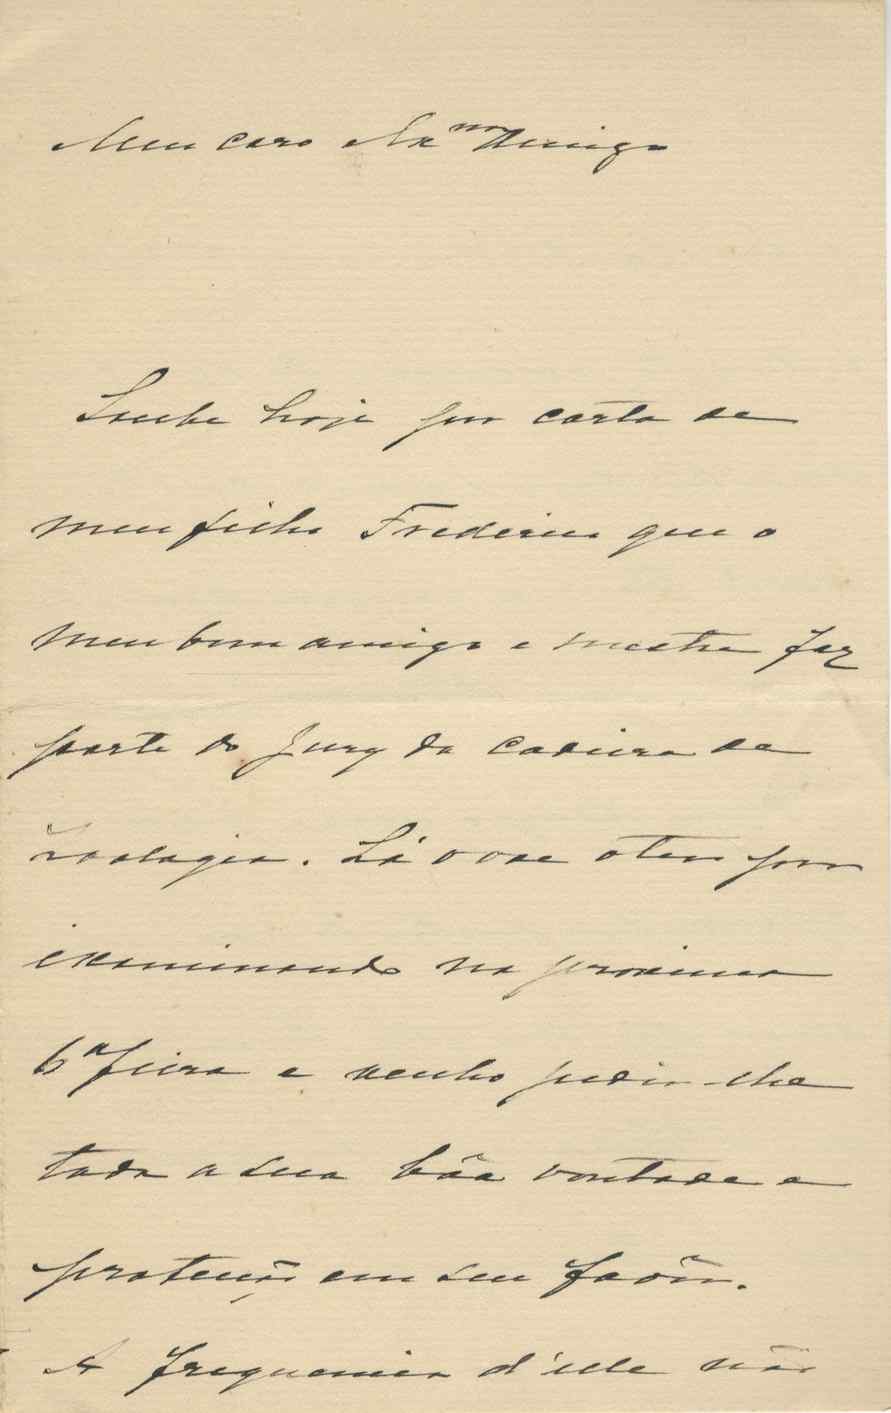 Meu caro Ex.mo Amigo
Soube hoje por carta de
meu filho Frederico que o
meu bom amigo e mestre faz
parte do Jury da cadeira de
zoologia. Lá o vae ter por
examinando na proxima
6ª feira e venho pedir-lhe
toda a sua bôa vontade e
protecção em seu favôr.
A frequencia d'elle não